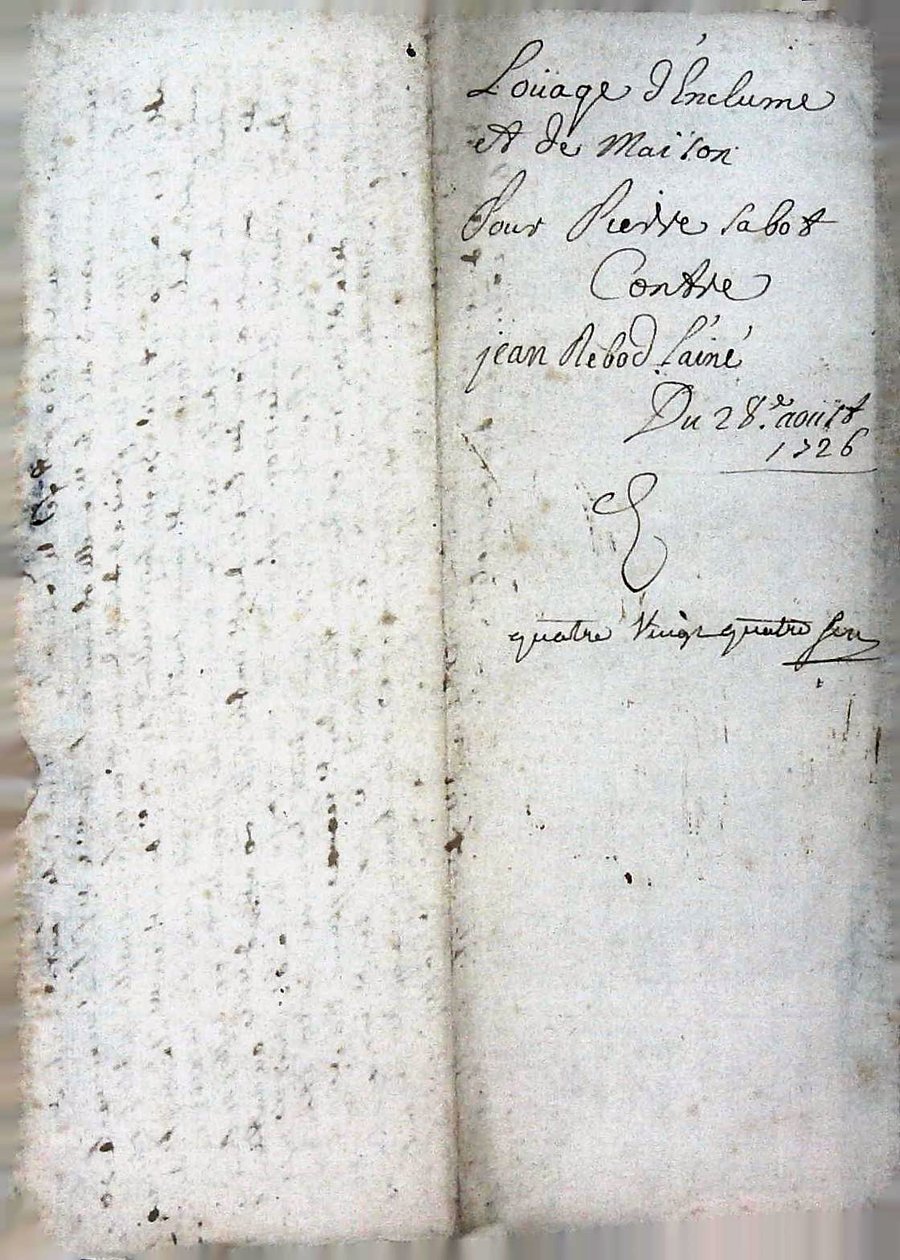 Loüage d'Enclume
et de Maïson
Pour Pierre Sabot
Contre
jean Rebod L'ainé
Du 28.e aoüst
1726
quatre Vingt quatre